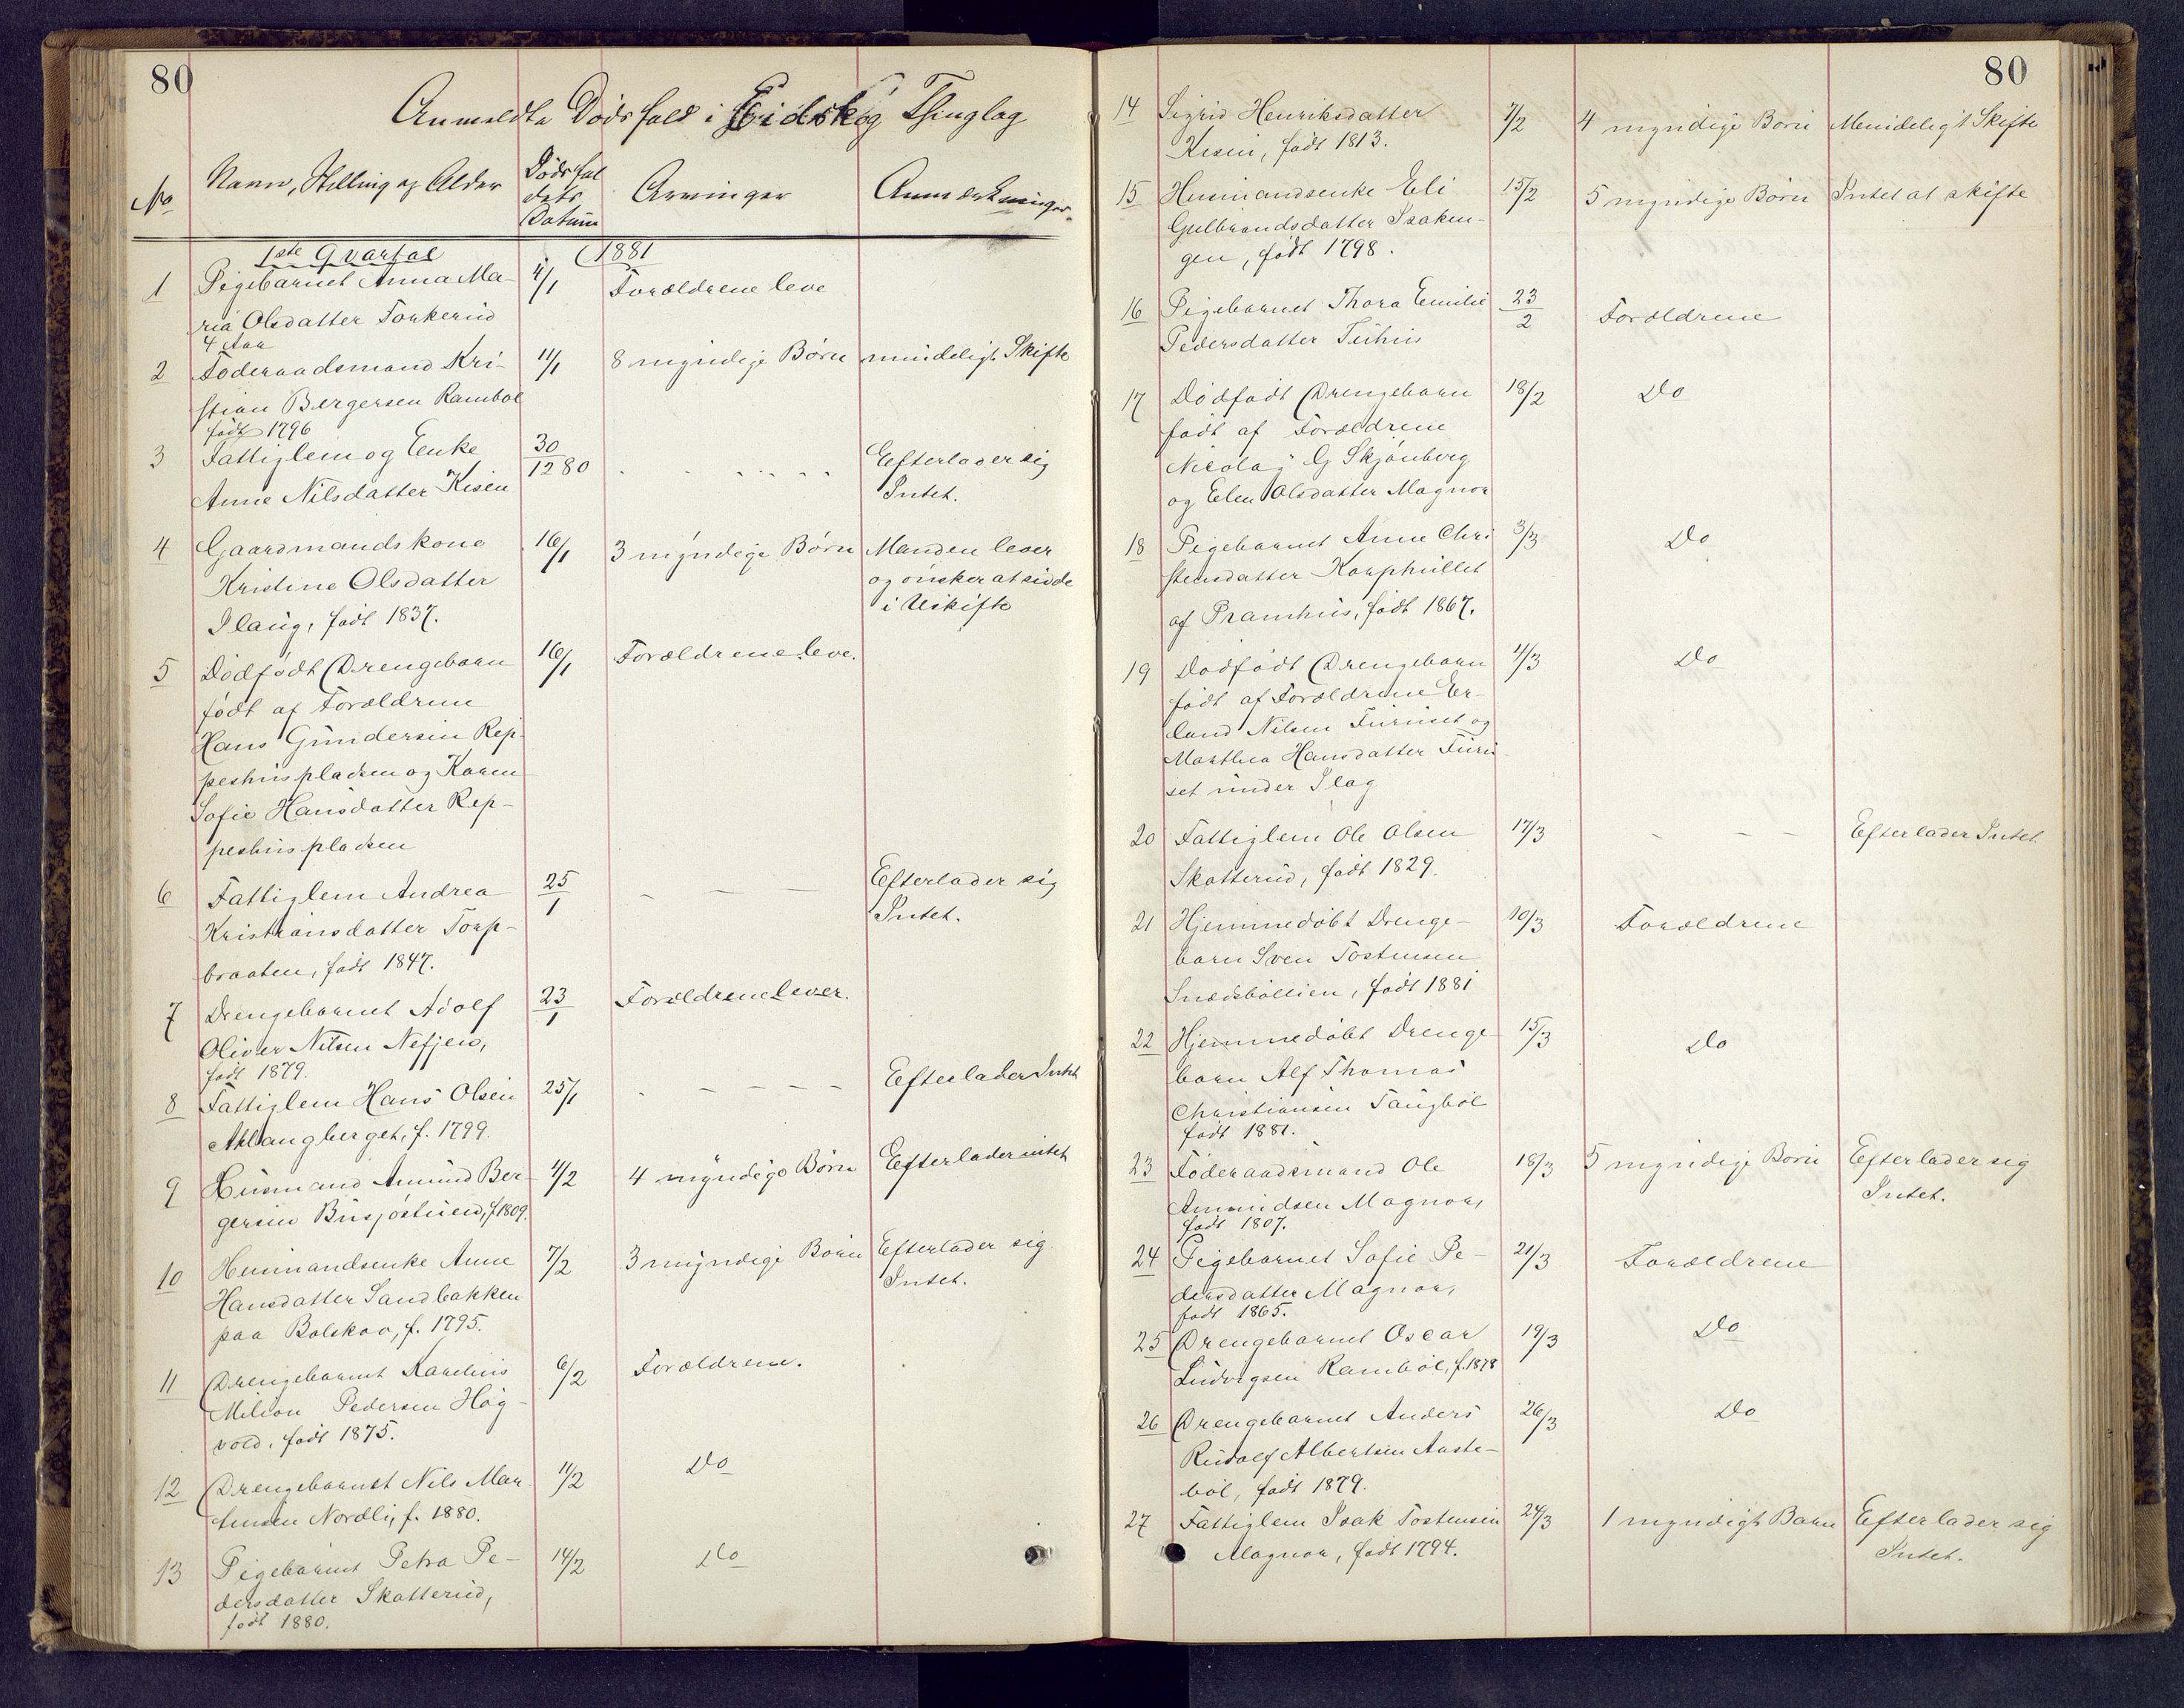 80
Anmeldte Dødsfald i Eidskog Thinglag
No
Navn, Stilling og Alder
Dødsfal
dets
Datum
Arvinger
Anmærkninger
1ste Qvartal 1881
1 Pigebarnet Anna Ma- 4/1 Forældrene leve
ria Olsdatter Torkerud
4 Aar
2 Føderaadsmand Kri- 11/1 8 myndige Børn mindeligt Skifte
stian Bergersen Rambøl
født 1796
3 Fattiglem og Enke 30/12 80 Efterlader sig
Anne Nilsdatter Kisen Intet.
4 Gaardmandskone 16/1 3 myndige Børn Manden lever
Kristine Olsdatter og ønsker at sidde
Ilaug, født 1837. i Uskifte
5 Dødfødt Drengebarn 16/1 Forældrene leve.
født af Forældrene
Hans Gundersen Rep-
peshuspladsen og Karen
Sofie Hansdatter Rep-
peshuspladsen
6 Fattiglem Andrea 25/1 – – – Efterlader sig
Kristiansdatter Torp- Intet.
braaten, født 1847.
7 Drengebarnet Adolf 23/1 Forældrene lever.
Oliver Nilsen
født 1879.
8 Fattiglem Hans Olsen 25/1 – – – – Efterlader Intet
f. 1799.
9 Husmand Amund Ber- 4/2 4 myndige Børn Efterlader intet
gersen f. 1809.
10 Husmandsenke Anne 7/2 3 myndige Børn Efterlader sig
Hansdatter Sandbakken Intet.
paa f. 1795.
11 Drengebarnet Karelius 6/2 Forældrene.
Milian Pedersen Høg-
vold, født 1875.
12 Drengebarnet Nils Mar- 11/2 Do
tinsen Nordli, f. 1880.
13 Pigebarnet Petra Pe- 14/2 Do
dersdatter Skatterud,
født 1880.
80
14 Sigrid Henriksdatter 7/2 4 myndige Børn Mindeligt Skifte
Kisen, født 1813.
15 Husmandsenke Eli 15/2 5 myndige Børn Intet at skifte
Gulbrandsdatter Isaken-
gen, født 1798.
16 Pigebarnet Thora Emilie 23/2 Forældrene
Pedersdatter
17 Dødfødt Drengebarn 18/2 Do
født af Forældrene
Nicolay G Skjønberg
og Elen Olsdatter Magnor
18 Pigebarnet Anne Chri 3/3 Do
stensdatter Korphullet
af Pramhus, født 1867.
19 Dødfødt Drengebarn 4/3 Do
født af Forældrene Er-
land Nilsen Furuset og
Marthea Hansdatter Furu
set under Ilag
20 Fattiglem Ole Olsen 17/3 – – – Efterlader Intet
Skatterud, født 1829.
21 Hjemmedøbt Drenge- 10/3 Forældrene
barn Sven Tostensen
født 1881
22 Hjemmedøbt Drenge- 15/3 Do
barn Alf Thomas
Christiansen Taugbøl
født 1881.
23 Føderaadsmand Ole 18/3 5 myndige Børn Efterlader sig
Amundsen Magnor, Intet.
født 1807.
24 Pigebarnet Sofie Pe- 21/3 Forældrene
dersdatter Magnor,
født 1865.
25 Drengebarnet Oscar 19/3 Do
Ludvigsen Rambøl, f. 1878
26 Drengebarnet Anders 26/3 Do
Rudolf Albertsen Auste-
bøl, født 1879.
27 Fattiglem Isak Tostensen 24/3 1 myndigt Barn Efterlader sig
Magnor, født 1794. Intet.